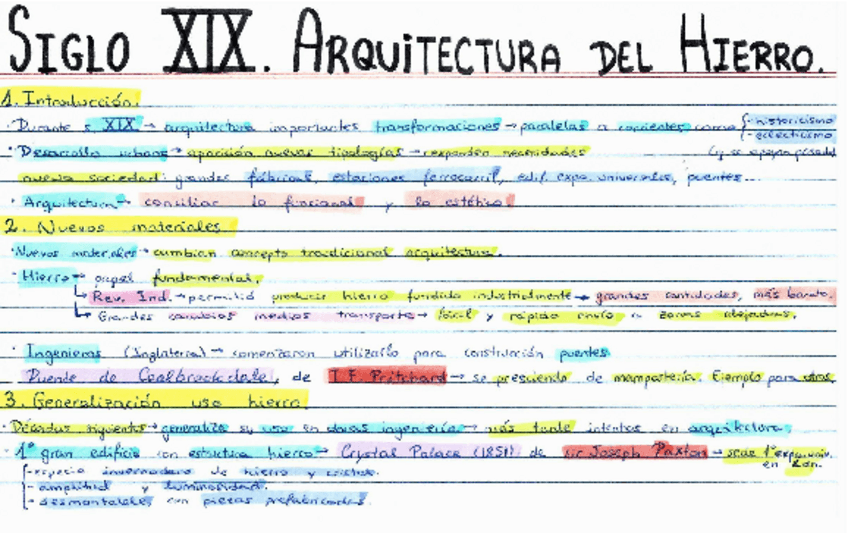 SIGLO XIX. ARQUITECTURA DEL HIERRO.
1. Introducción.
· Durante s. XIX → arquitectura importantes transformaciones → paralelas a corrientes como - historicismo
- eclecticismo
· Desarrollo urbano → aparición nuevas tipologías → responden necesidades
nueva sociedad: grandes fábricas, estaciones ferrocarril, edif. expo. universales, puentes...
· Arquitectura → conciliar lo funcional y lo estético.
2. Nuevos materiales
· Nuevos materiales → cambian concepto tradicional arquitectura.
· Hierro → papel fundamental.
→ Rev. Ind. → permitió producir hierro fundido industrialmente → grandes cantidades, más barato.
→ Grandes cambios medios transporte → fácil y rápido envío a zonas alejadas.
· Ingenieros (Inglaterra) → comenzaron utilizarlo para construcción puentes.
Puente de Coalbrookdale, de T.F. Pritchard → se prescinde de mampostería. Ejemplo para otros.
3. Generalización uso hierro.
· Décadas siguientes → generaliza su uso en obras ingeniería → más tarde intentos en arquitectura.
· 1º gran edificio con estructura hierro → Crystal Palace (1851) de sir Joseph Paxton → sede 1ª expo. univ.
en Lon.
- especie invernadero de hierro y cristal.
- amplitud y luminosidad.
- desmontable, con piezas prefabricadas.